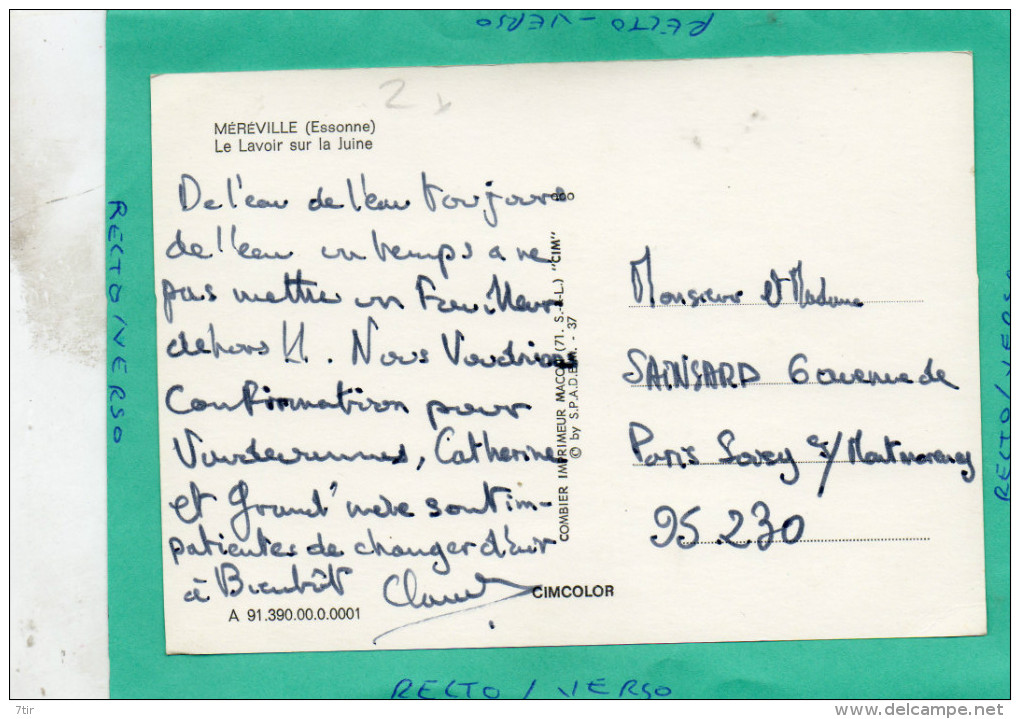 RECTO - VERSO
2
MÉRÉVILLE (Essonne)
Le Lavoir sur la Juine
De l'eau de l'eau toujours
de l'eau un temps a ne
pas mettre un Facteur
dehors !!. Nous Voudrions
Confirmation pour
Vardeurennes, Catherine
et Grand'mère sont im-
patientes de changer d'air
à Bientôt Claude
A 91.390.00.0.0001
COMBIER IMPRIMEUR MACON (71. S.-&-L.) "CIM"
© by S.P.A.D.E.M. - 37
CIMCOLOR
Monsieur et Madame
SAINSARD 6 avenue de
Paris Soisy s/Montmorency
95.230
RECTO / VERSO
RECTO / VERSO
RECTO / VERSO
7tir
www.delcampe.net